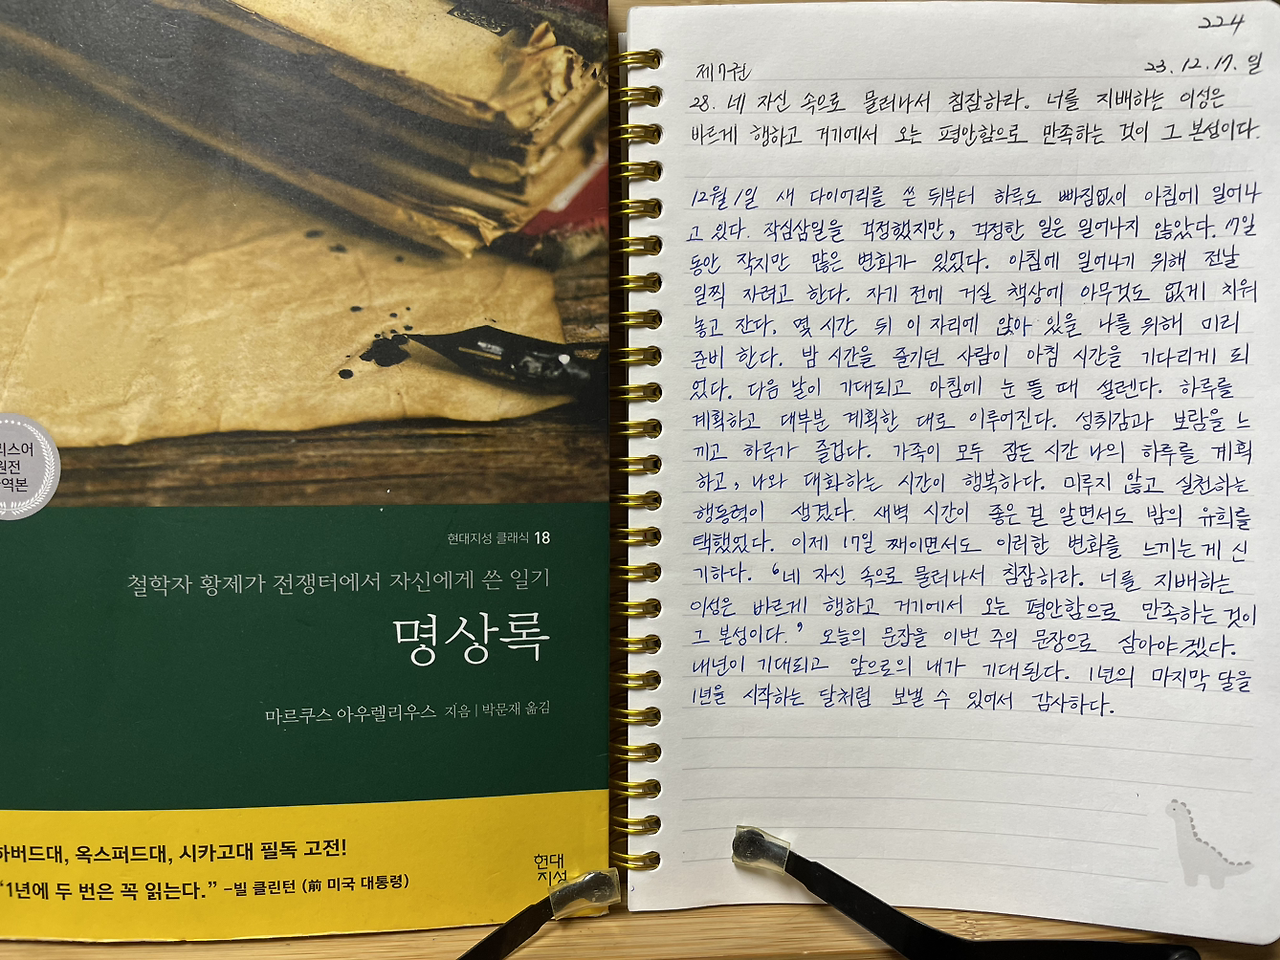 리스어
원전
역본
현대지성 클래식 18
철학자 황제가 전쟁터에서 자신에게 쓴 일기
명상록
마르쿠스 아우렐리우스 지음 | 박문재 옮김
하버드대, 옥스퍼드대, 시카고대 필독 고전!
“1년에 두 번은 꼭 읽는다.” –빌 클린턴 (前 미국 대통령)
현대
지성
224
제7권
23.12.17.일
28. 네 자신 속으로 물러나서 침잠하라. 너를 지배하는 이성은
바르게 행하고 거기에서 오는 평안함으로 만족하는 것이 그 본성이다.
12월 1일 새 다이어리를 쓴 뒤부터 하루도 빠짐없이 아침에 일어나
고 있다. 작심삼일을 걱정했지만, 걱정한 일은 일어나지 않았다. 17일
동안 작지만 많은 변화가 있었다. 아침에 일어나기 위해 전날
일찍 자려고 한다. 자기 전에 거실 책상에 아무것도 없게 치워
놓고 잔다. 몇 시간 뒤 이 자리에 앉아 있을 나를 위해 미리
준비 한다. 밤 시간을 즐기던 사람이 아침 시간을 기다리게 되
었다. 다음 날이 기대되고 아침에 눈 뜰 때 설렌다. 하루를
계획하고 대부분 계획한 대로 이루어진다. 성취감과 보람을 느
끼고 하루가 즐겁다. 가족이 모두 잠든 시간 나의 하루를 계획
하고, 나와 대화하는 시간이 행복하다. 미루지 않고 실천하는
행동력이 생겼다. 새벽 시간이 좋은 걸 알면서도 밤의 유희를
택했었다. 이제 17일 째이면서도 이러한 변화를 느끼는 게 신
기하다. ‘네 자신 속으로 물러나서 침잠하라. 너를 지배하는
이성은 바르게 행하고 거기에서 오는 평안함으로 만족하는 것이
그 본성이다.’ 오늘의 문장을 이번 주의 문장으로 삼아야겠다.
내년이 기대되고 앞으로의 내가 기대된다. 1년의 마지막 달을
1년을 시작하는 달처럼 보낼 수 있어서 감사하다.